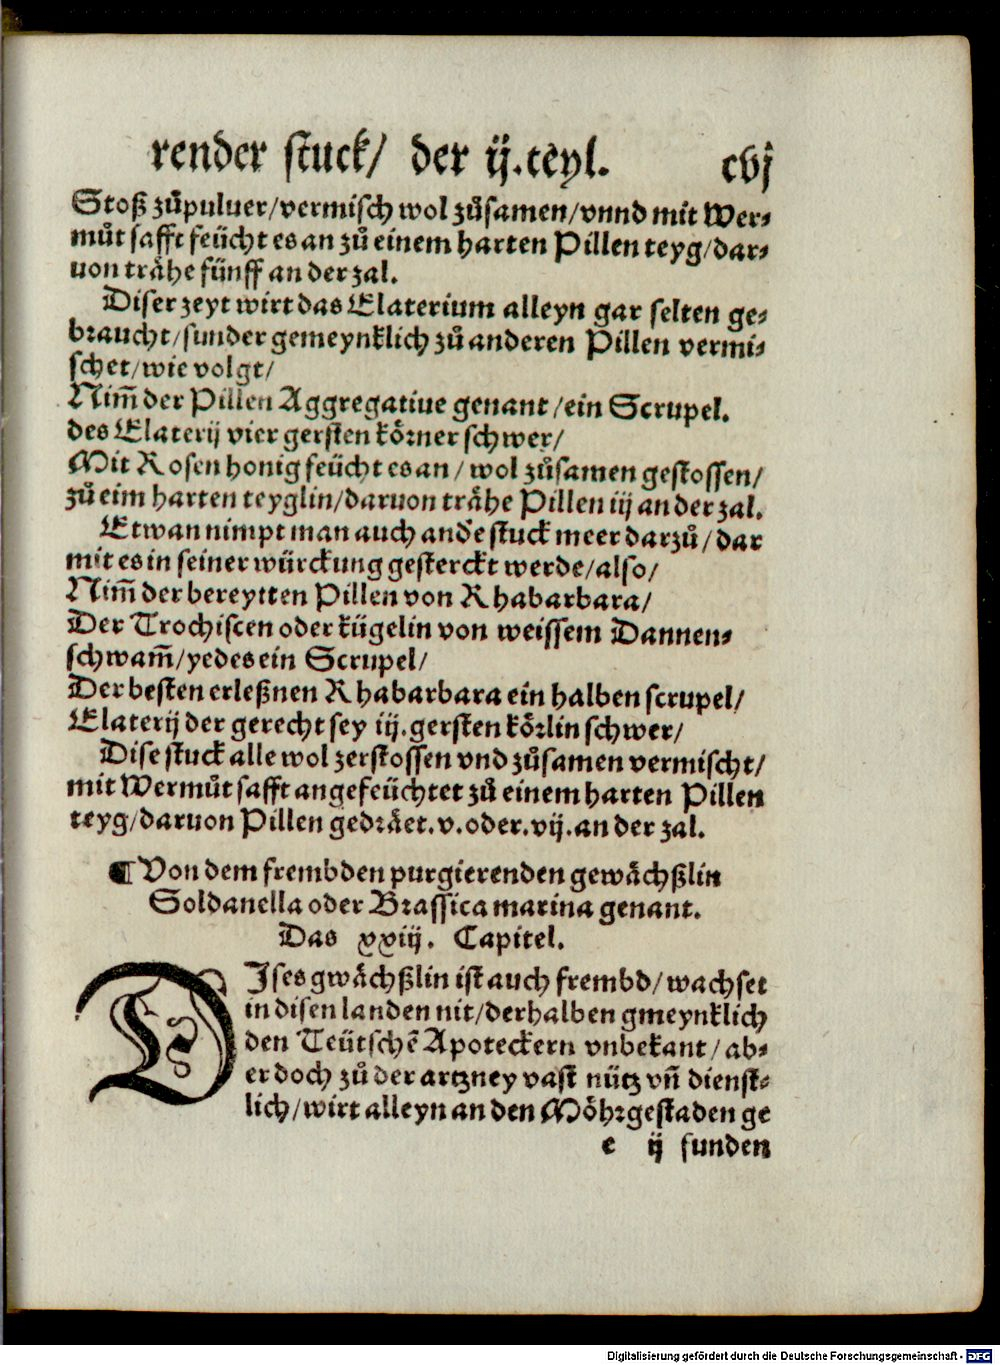 render stuck/ der ij.teyl. cvj
Stoß zůpuluer/vermisch wol zůsamen/vnnd mit Wer⸗
můt safft feücht es an zů einem harten Pillen teyg/dar⸗
uon trähe fünff an der zal.
Diser zeyt wirt das Elaterium alleyn gar selten ge⸗
braucht/sunder gemeynklich zů anderen Pillen vermi⸗
schet/wie volgt/
Nim̃ der Pillen Aggregatiue genant/ein Scrupel.
des Elaterij vier gersten körner schwer/
Mit Rosen honig feücht es an/wol zůsamen gestossen/
zů eim harten teyglin/daruon trähe Pillen iij an der zal.
Etwan nimpt man auch andẽ stuck meer darzů/dar
mit es in seiner würckung gesterckt werde/also/
Nim̃ der bereytten Pillen von Rhabarbara/
Der Trochiscen oder kügelin von weissem Dannen⸗
schwam̃/yedes ein Scrupel/
Der besten erleßnen Rhabarbara ein halben scrupel/
Elaterij der gerecht sey iij.gersten körlin schwer/
Dise stuck alle wol zerstossen vnd zůsamen vermischt/
mit Wermůt safft angefeüchtet zů einem harten Pillen
teyg/daruon Pillen gedräet.v.oder.vij.an der zal.
¶ Von dem frembden purgierenden gewächßlin
Soldanella oder Brassica marina genant.
Das xxiij. Capitel.
DIses gwächßlin ist auch frembd/wachset
in disen landen nit/derhalben gmeynklich
den Teütschẽ Apoteckern vnbekant/ab⸗
er doch zů der artzney vast nütz vñ dienst⸗
lich/wirt alleyn an den Möhrgestaden ge
e ij sunden
Digitalisierung gefördert durch die Deutsche Forschungsgemeinschaft - DFG